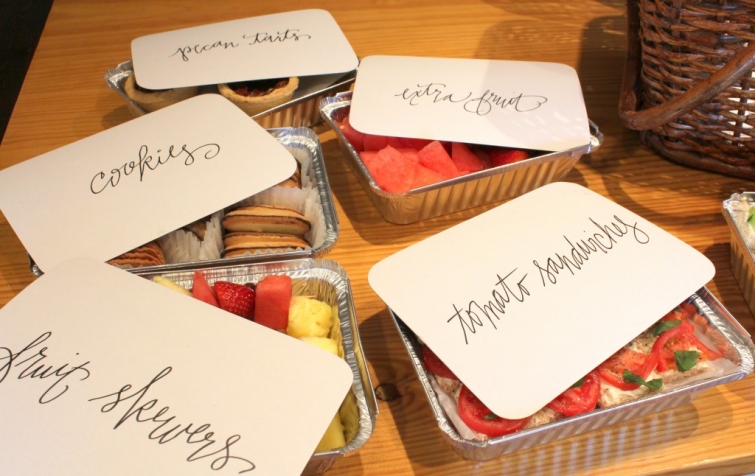 pecan tarts
extra fruit
cookies
tomato sandwiches
fruit skewers